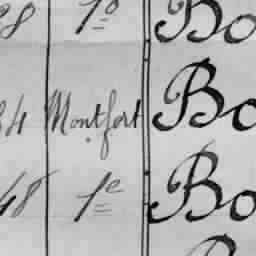 28 1º Bo
34 Montfort Bo
48 1e Bo